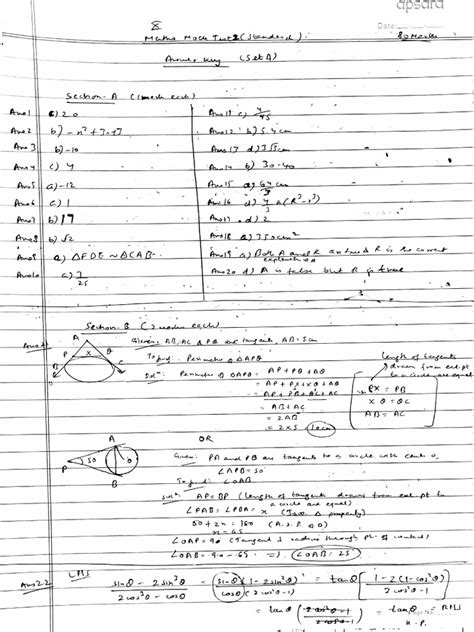 apsara
Date
8
Maths Mock Test 2 (Standard)
80 Marks
Answer key (Set A)
Section-A (1 mark each)
Ans 1 c) 20
Ans 2
Ans 3 b) -10
Ans 4 c) 4
Ans 5 a) -12
Ans 6 c) 1
Ans 7 b) 17
Ans 8 b) √2
Ans 9 a) ΔFDE ~ ΔCAB
Ans 10 c) 1/25
Ans 11 c)
Ans 12 b) 5.4 cm
Ans 13
Ans 14 b) 30-40
Ans 15
Ans 16
Ans 17 d) 2
Ans 18 a)
Ans 19 a) Both A and R are true & R is the correct
explanation of A
Ans 20 d) A is false but R is true
Section-B (2 marks each)
Ans 21
A
P X Q
B C
Given: AB, AC & PQ are tangents, AB = 5cm
To find: Perimeter of ΔAPQ
Solⁿ: Perimeter of ΔAPQ = AP + PQ + AQ
= AP + PX + XQ + AQ
= AP + PB + QC + AC
= AB + AC
= 2AB
= 2×5 10cm
length of tangents
drawn from ext. pt
to a circle are equal
PX = PB
XQ = QC
AB = AC
OR
A
P 50 O
B
Given: PA and PB are tangents to a circle with centre O,
∠APB = 50
To find: ∠OAB
Solⁿ: AP = BP (length of tangents drawn from ext. pt to
a circle are equal)
∠PAB = ∠PBA = x (Δ property)
50 + 2x = 180 (A.S.P. of Δ)
x = 65
∠OAP = 90 (Tangent ⊥ radius through pt. of contact)
∠OAB = 90 - 65 => ∠OAB = 25
Ans 22 LHS
sinθ - 2sin³θ / 2cos³θ - cosθ = sinθ(1 - 2sin²θ) / cosθ(2cos²θ - 1) = tanθ [1 - 2(1 - cos²θ) / 2cos²θ - 1]
= tanθ (2cos²θ - 1 / 2cos²θ - 1) = RHS
H.P.